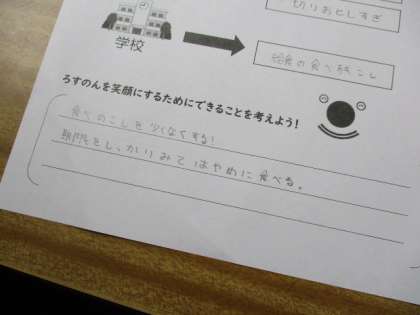 切りおとしすぎ
学校
給食の食べ残こし
ろすのんを笑顔にするためにできることを考えよう！
食べのこしを少なくする！
期限をしっかりみてはやめに食べる。